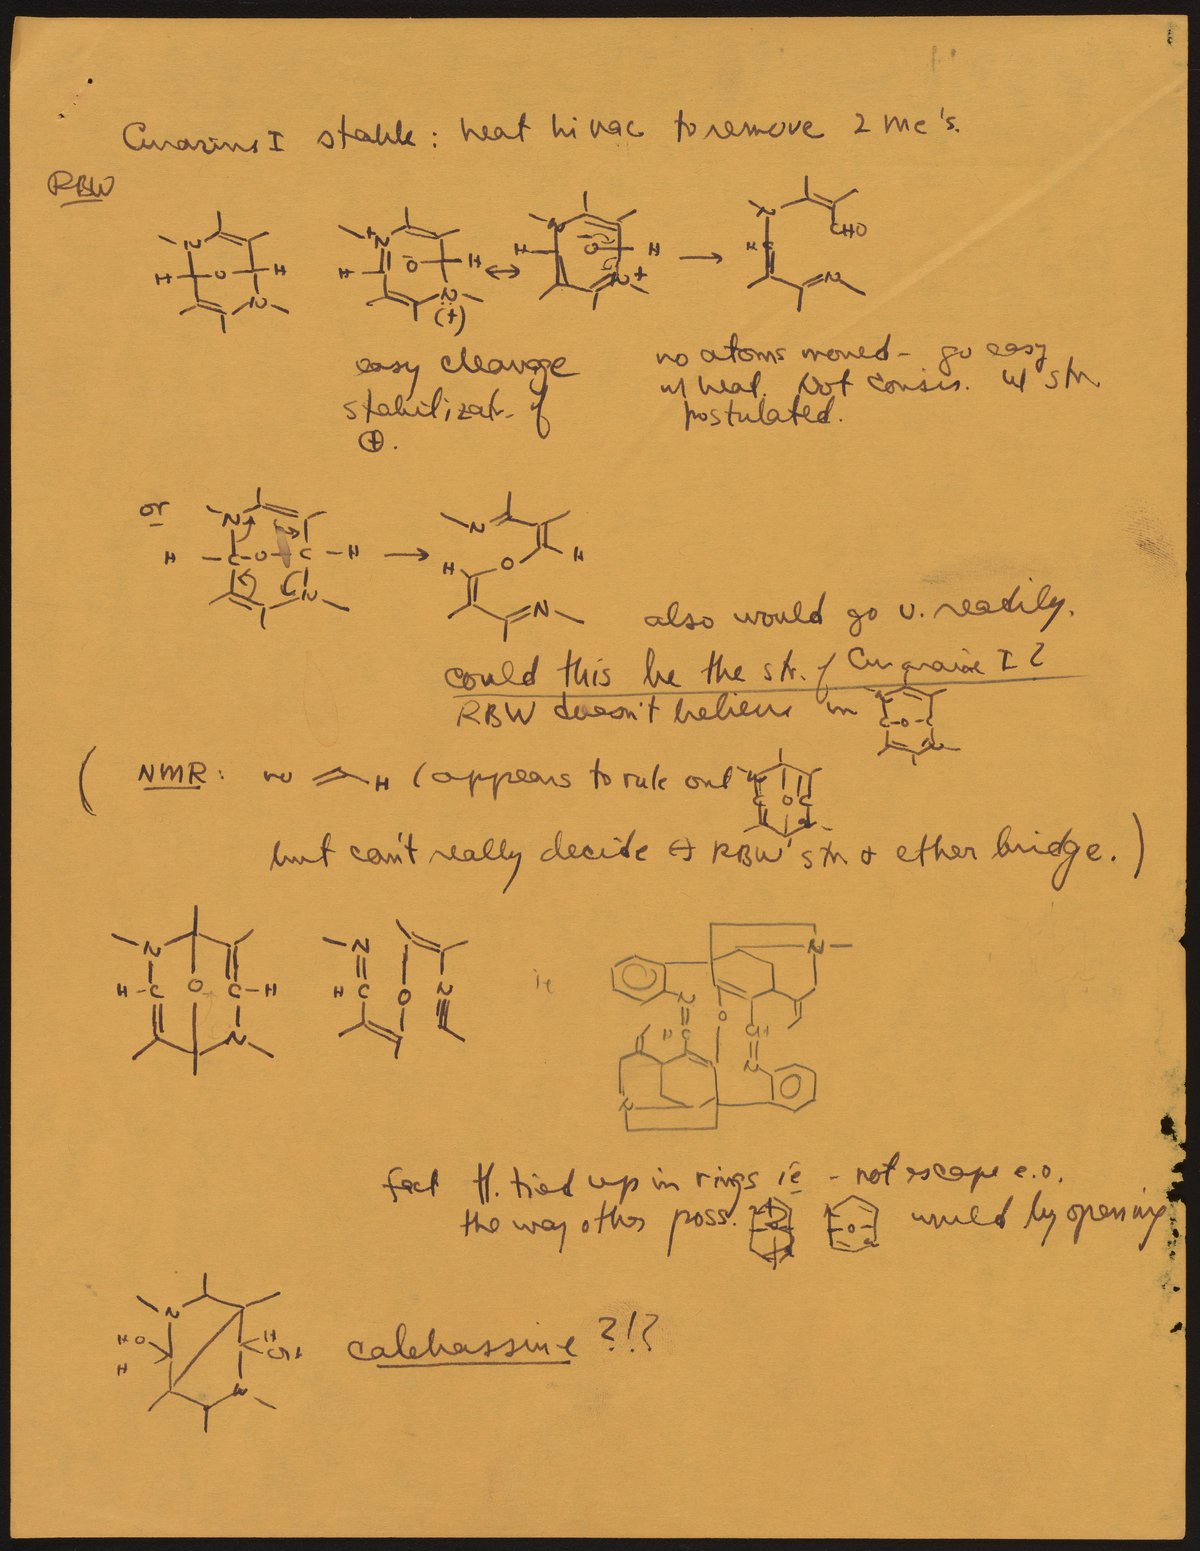 Curarine I stable: heat hi vac to remove 2 Me's.
RBW
N O H H N
N+ H Ō H N (+)
N H O H N+
N H CHO N
easy cleavage
stabilizat. of
⊕.
no atoms moved - go easy
w/ heat. Not consis. w/ str.
postulated.
or
N H C O C H N
N H O H N
also would go v. readily.
could this be the str. of Curarine I?
RBW doesn't believe in
C-O-C
NMR: no H (appears to rule out
but can't really decide ↔ RBW's str + ether bridge.)
N H-C O C-H N
N H C O N
ie
N N O H C CH N N
fact tied up in rings ie - not escape e.o.
the way other poss. would by opening
N HO H H OH N
calebassine ?!?